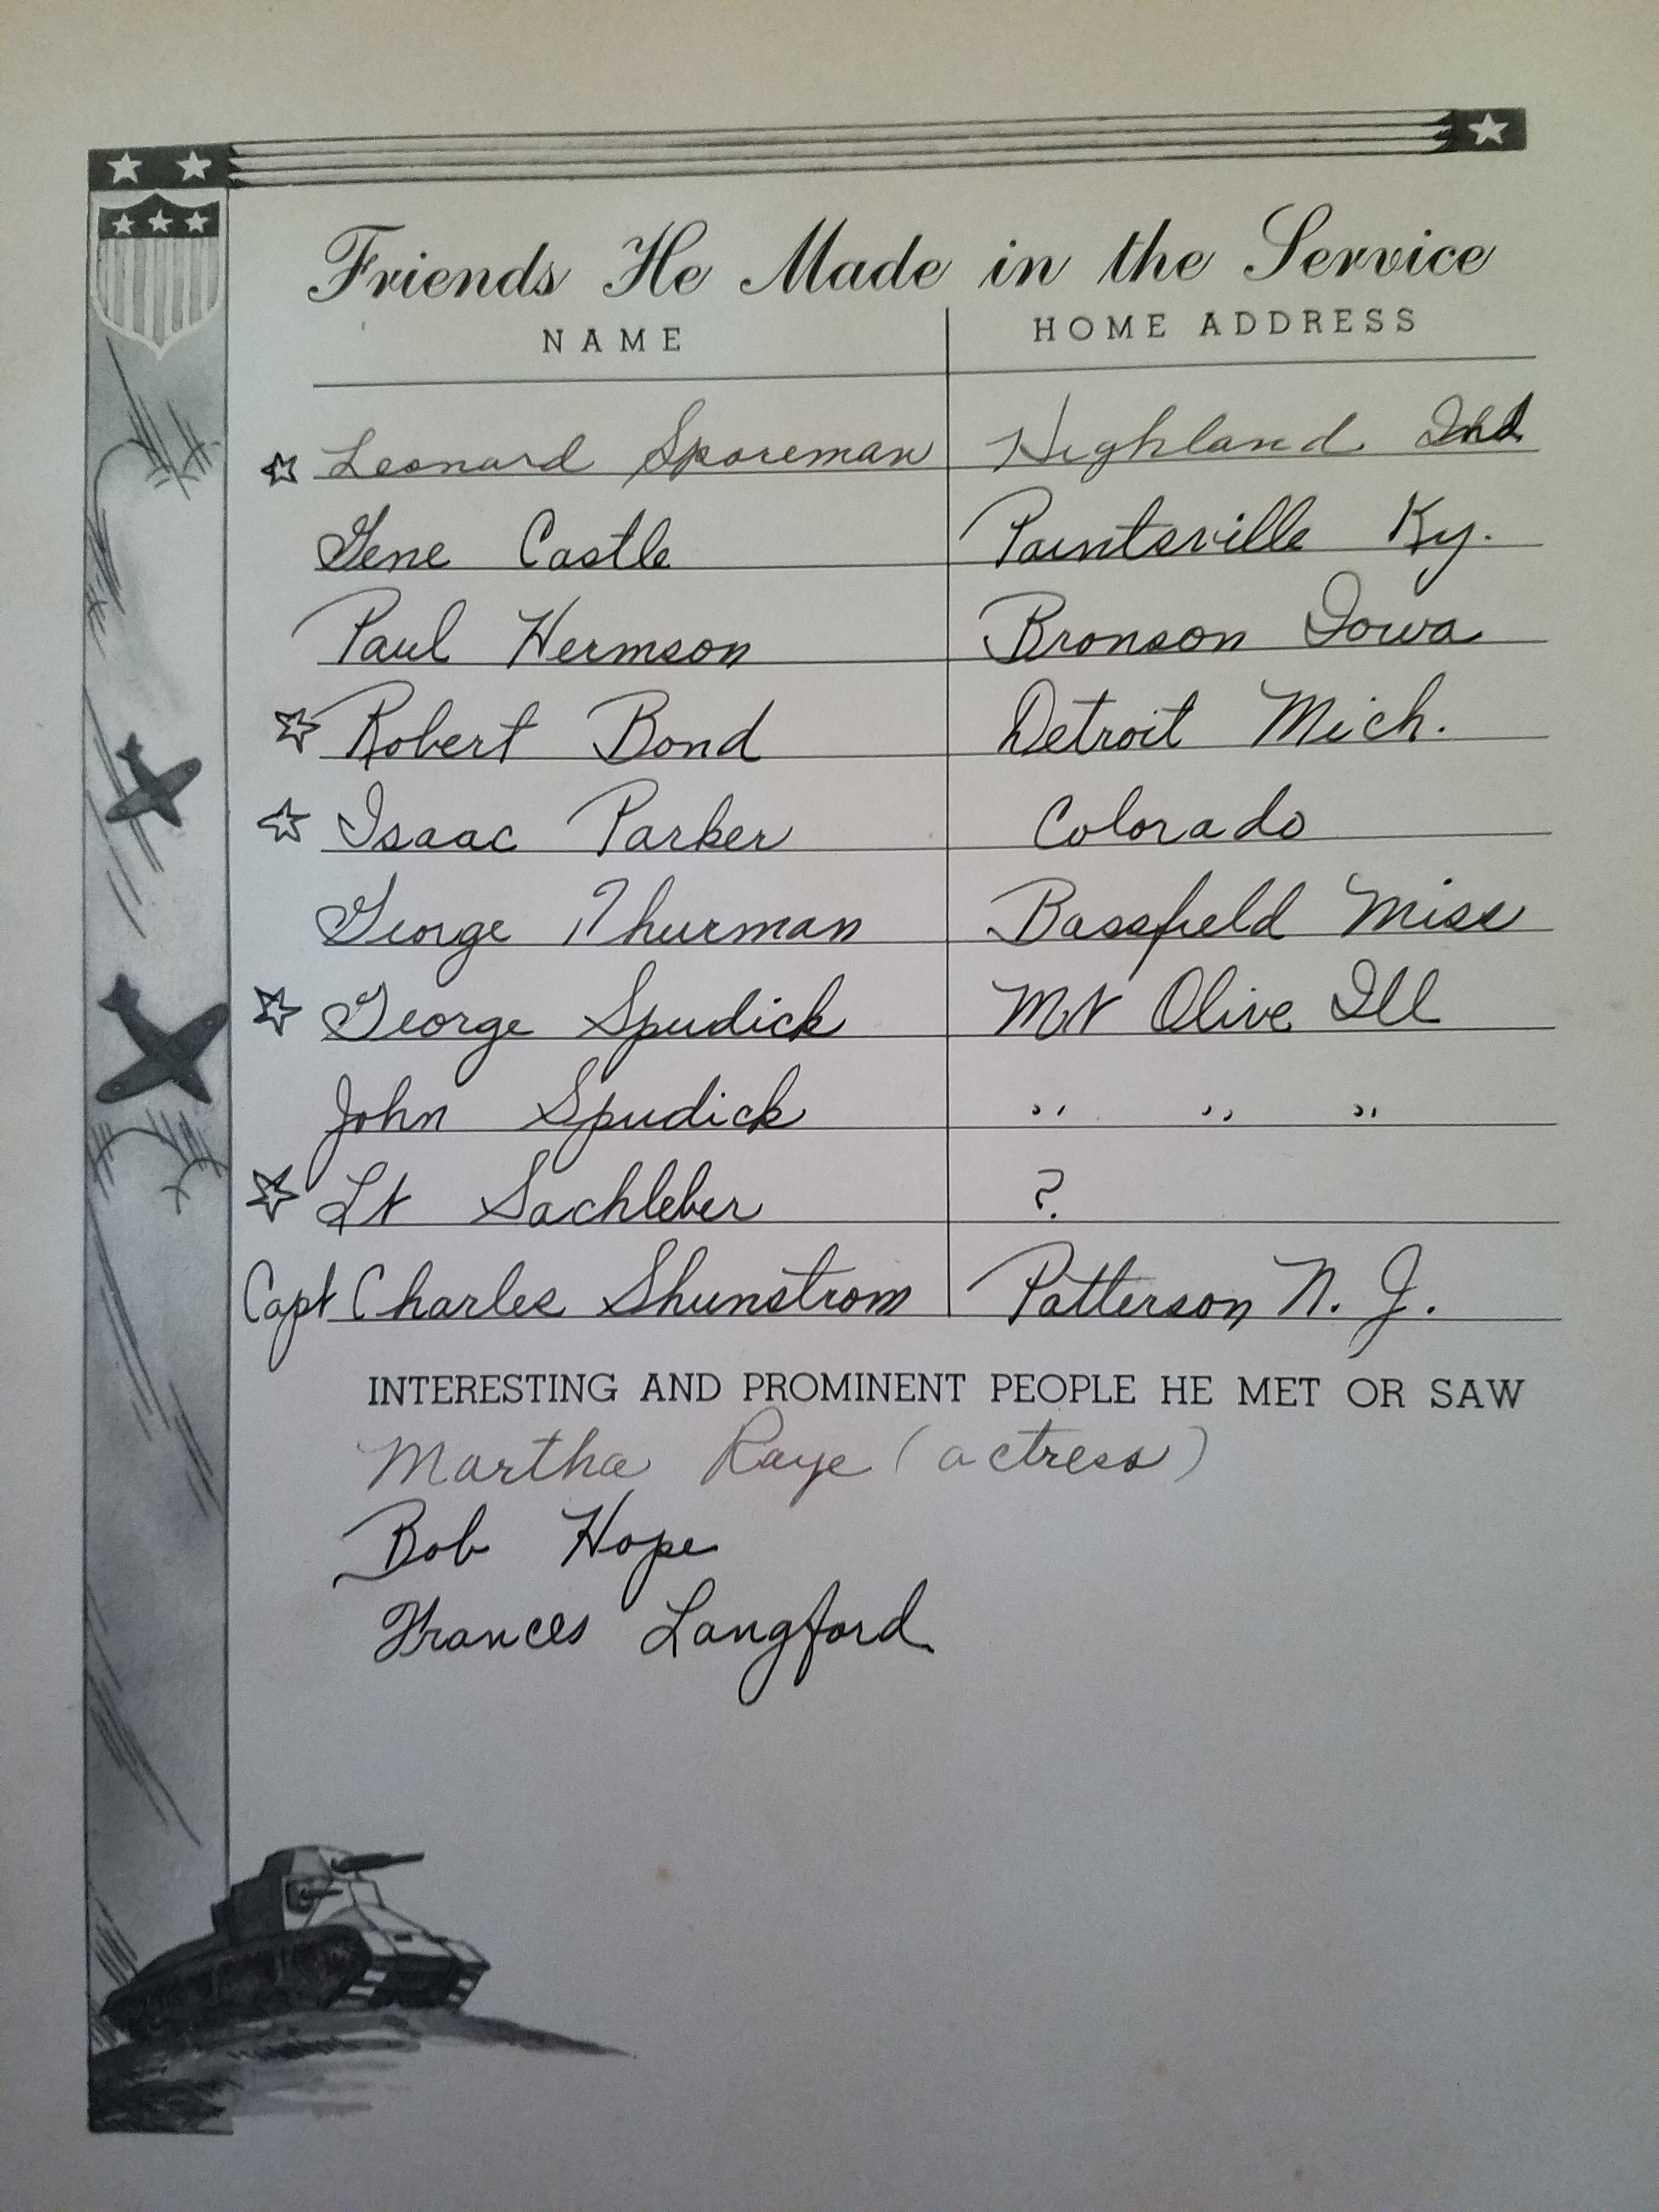 Friends He Made in the Service
NAME HOME ADDRESS
☆ Leonard Sporeman Highland Ind
Gene Castle Paintsville Ky.
Paul Hermson Bronson Iowa
☆ Robert Bond Detroit Mich.
☆ Isaac Parker Colorado
George Thurman Bassfield Miss
☆ George Spudick Mt Olive Ill
John Spudick " " "
☆ Lt Sachleber ?
Capt Charles Shunstrom Patterson N. J.
INTERESTING AND PROMINENT PEOPLE HE MET OR SAW
Martha Raye (actress)
Bob Hope
Frances Langford